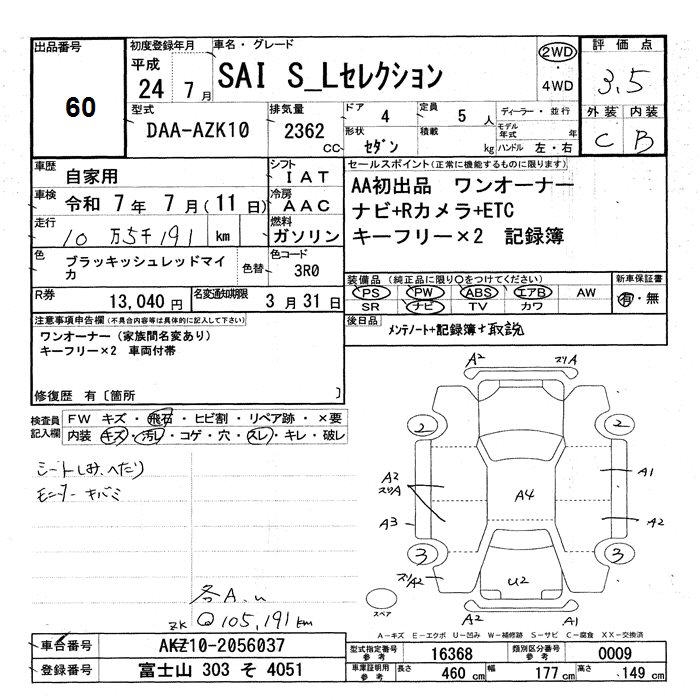 出品番号
60
初度登録年月
平成
24 7月
車名・グレード
SAI S_Lセレクション
2WD
・
4WD
評価点
3.5
外装 内装
C B
型式
DAA-AZK10
排気量
2362
CC
ドア
4
形状
セダン
定員
5人
積載
kg
ディーラー・並行
モデル年式 年
ハンドル 左・右
車歴
自家用
シフト
IAT
車検
令和 7年 7月(11日)
冷房
AAC
走行
10万5千191 km
燃料
ガソリン
色
ブラッキッシュレッドマイカ
色替
色コード
3R0
R券
13,040円
名変通知期限
3月31日
セールスポイント(正常に機能するものに限ります)
AA初出品 ワンオーナー
ナビ+Rカメラ+ETC
キーフリー×2 記録簿
装備品(純正品に限り○をつけてください)
PS PW ABS エアB AW
SR ナビ TV カワ
新車保証書
有・無
後日品
メンテノート+記録簿+取説
注意事項申告欄(不具合内容等は具体的に記入して下さい)
ワンオーナー(家族間名変あり)
キーフリー×2 車両付帯
修復歴 有〔箇所 〕
検査員記入欄
FW キズ・飛石・ヒビ割・リペア跡・×要
内装 キズ・汚レ・コゲ・穴・スレ・キレ・破レ
シートしみ、へたり
モニターキバミ
各A.u
ZK Q105,191km
A2 スリA
2 2
A2
スリA
A1
A4
A3 A2
3 3
スリA2
U2
スペア
A2 A1
A-キズ E-エクボ U-凹み W-補修跡 S-サビ C-腐食 XX-交換済
車台番号
AKZ10-2056037
登録番号
富士山 303 そ 4051
型式指定番号
参考
16368
類別区分番号
参考
0009
車庫証明用
参考
長さ 460cm 幅 177cm 高さ 149cm